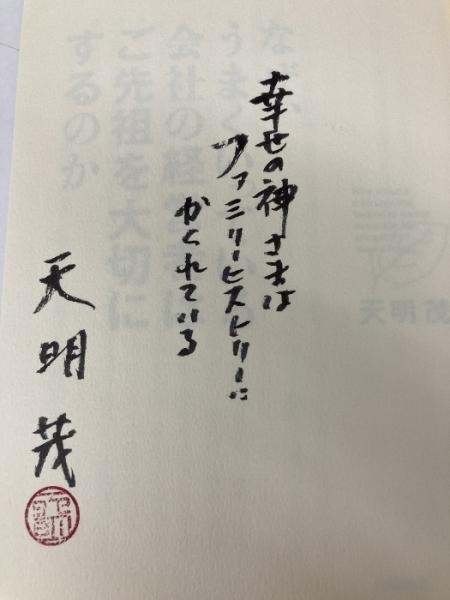 幸せの神さまは
ファミリーヒストリーに
かくれている
天明茂
うまくいっている
会社の経営者は
ご先祖を大切に
するのか
天明 茂